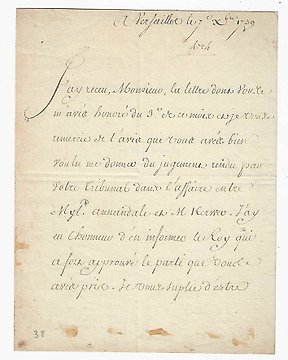 A Versailles le 7e Xbre 1739
J'ay receu, Monsieur, la lettre dont vous
m'avés honoré du 3e. de ce mois et je vous
remercie de l'avis que vous avés bien
voulu me donner du jugement rendu par
votre Tribunal dans l'affaire entre
Myl. annandale et M. J'ay
eu l'honneur d'en informer le Roy qui
a fort approuvé le parti que vous
avés pris. Je vous suplie d'estre
38